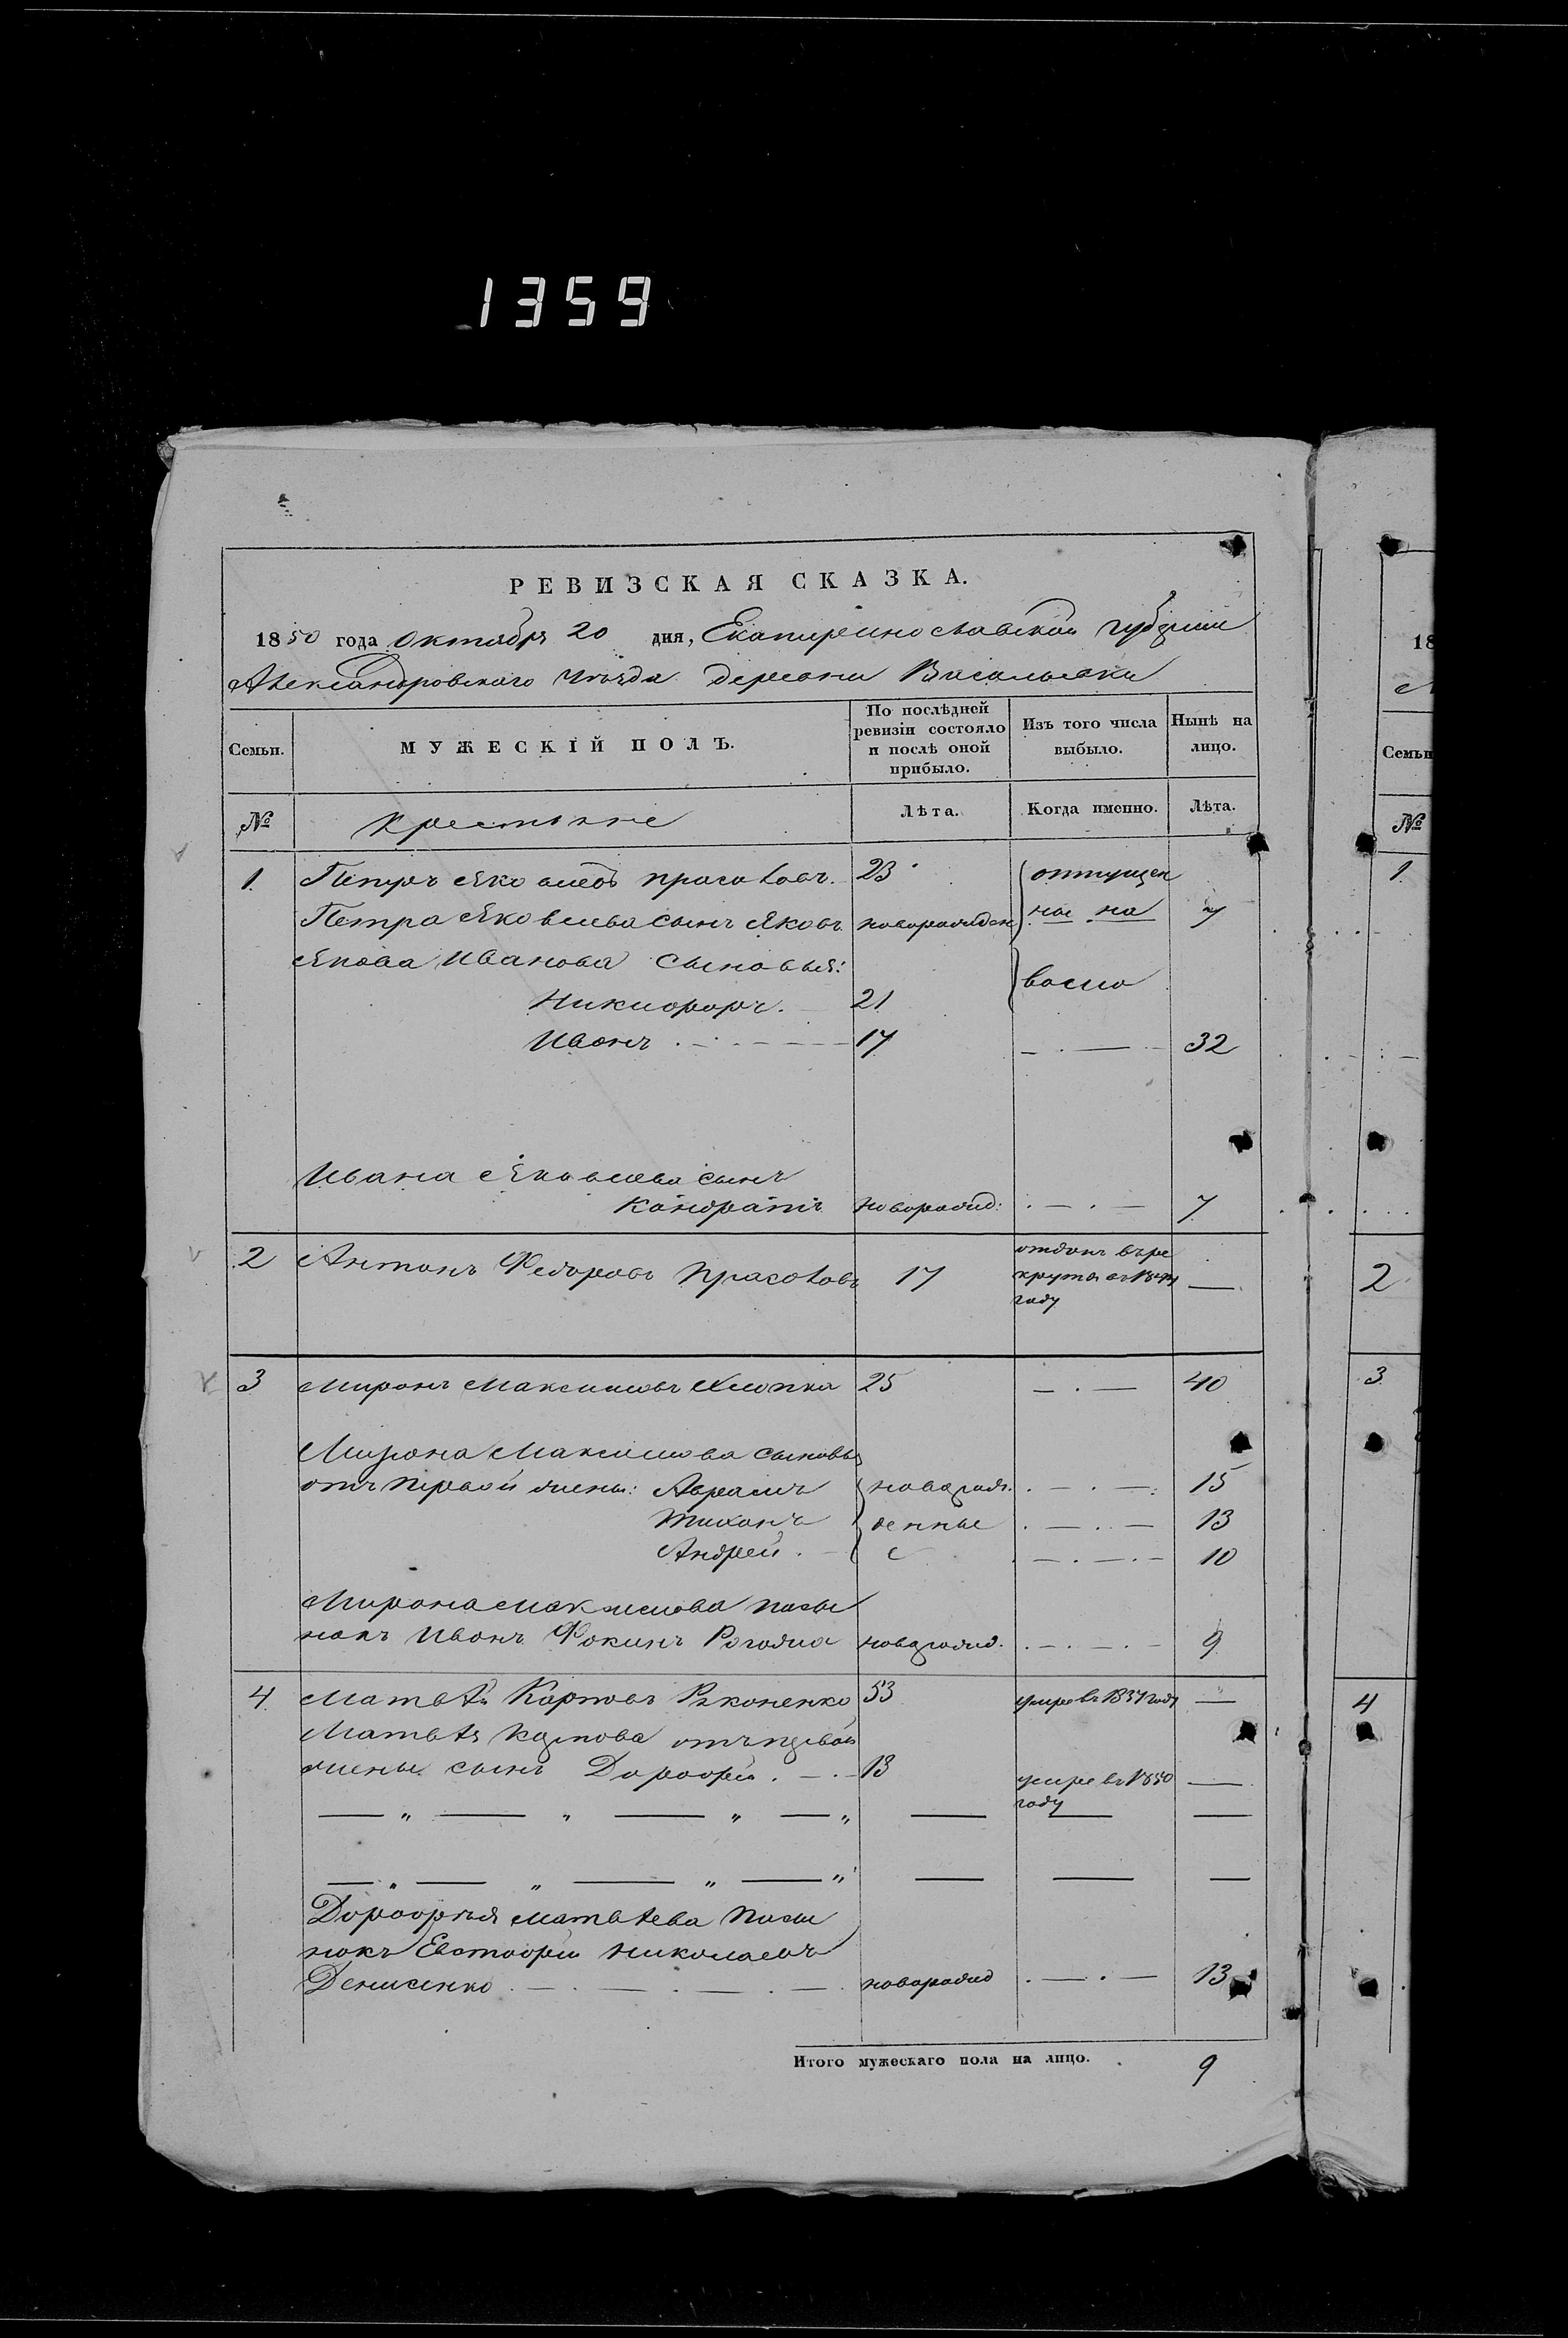 1359
РЕВИЗСКАЯ СКАЗКА.
1850 года Октября 20 дня, Екатеринославской губернии
Александровскаго уѣзда деревни Васильевки
Семьи. МУЖЕСКІЙ ПОЛЪ. По послѣдней ревизіи состояло и послѣ оной прибыло. Изъ того числа выбыло. Нынѣ на лицо.
№ Крестьяне Лѣта. Когда именно. Лѣта.
1 Петръ Яковлевъ 23 отпущен
Петра Яковлева сынъ Яковъ новорожден ные на 7
Якова Иванова сыновья: волю
Никифоръ. 21
Иванъ 17 32
Ивана Яковлева сынъ
Кондратъ новорожд: 7
2 Антонъ Федоровъ 17 отданъ въ ре
круты въ году —
3 Миронъ Максимовъ 25 40
Мирона Максимова сыновья
отъ первой жены: Авраамъ новорож 15
Тихонъ денные 13
Андрей 10
Мирона Максимова пасы
нокъ Иванъ Фокинъ Рогожа новорожд. 9
4 Матвѣй Карповъ Ряконенко 53 умре въ году —
Матвѣя Карпова отъ первой
жены сынъ Дорофей 13 умре въ 1850 —
году
Дорофея Матвѣева пасы
нокъ Евстафій Николаевъ
Денисенко новорожд 13
Итого мужескаго пола на лицо. 9
18
Семьи
№
1
2
3
4